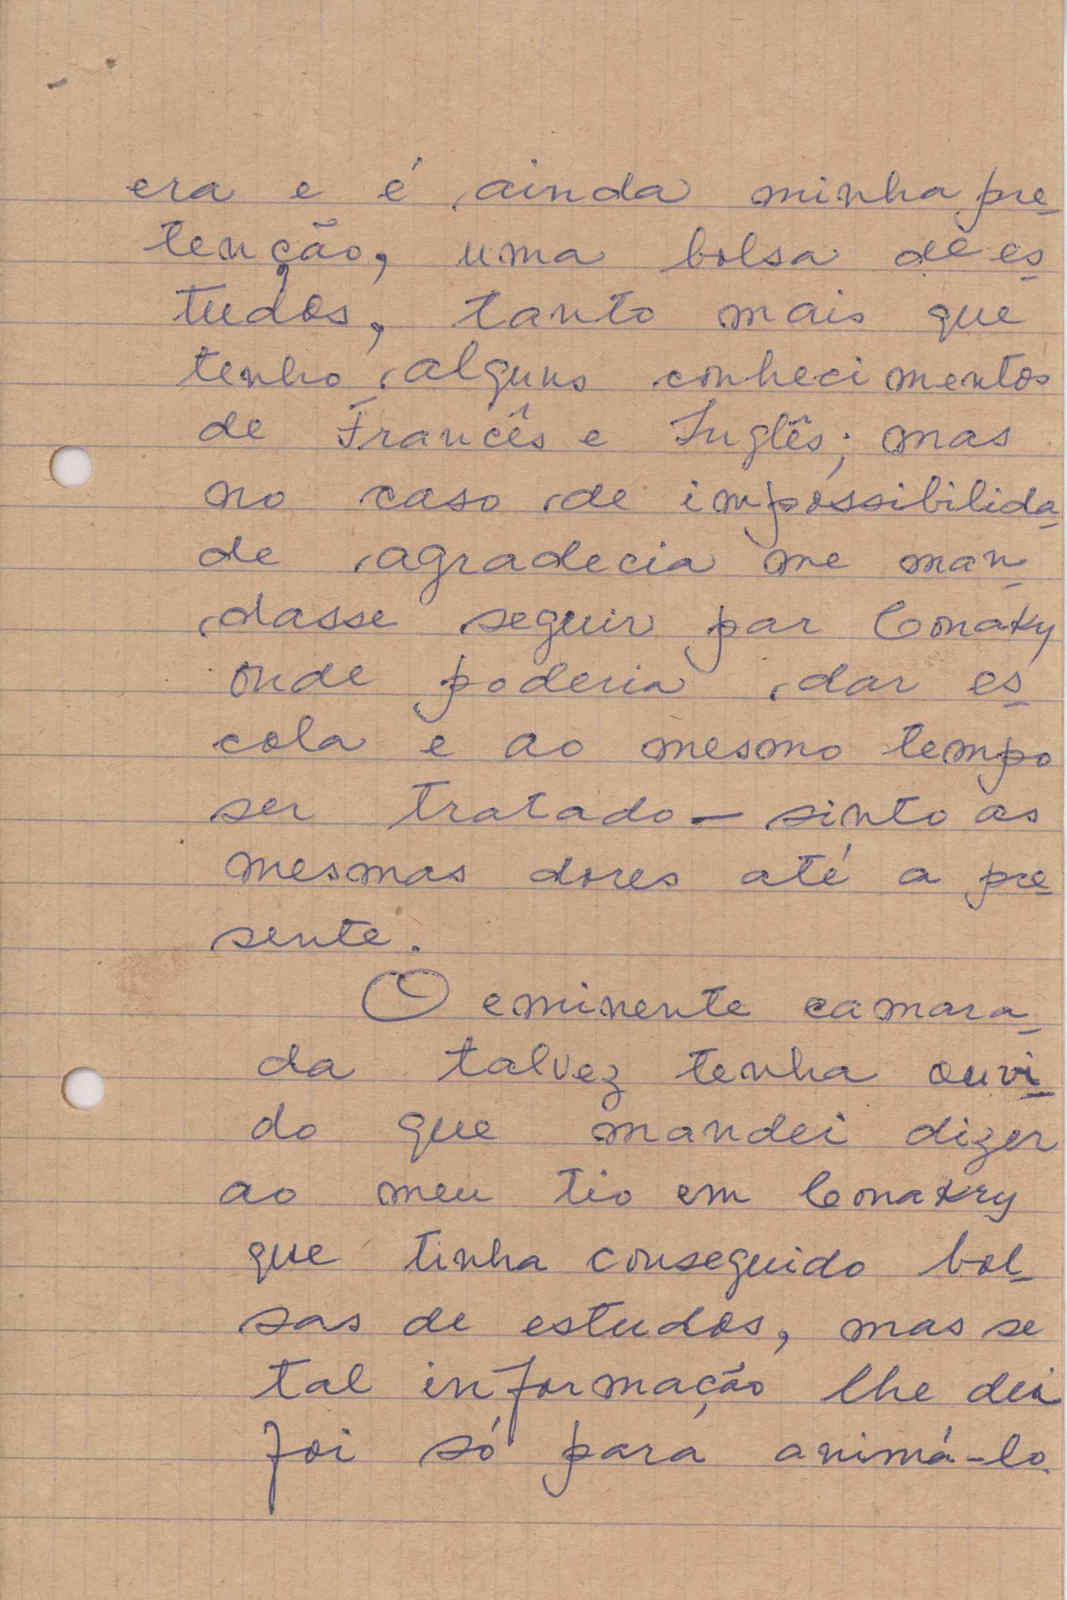 era e é ainda minha pre-
tenção, uma bolsa de es-
tudos, tanto mais que
tenho alguns conhecimentos
de Francês e Inglês; mas
no caso de impossibilida-
de agradecia me man-
dasse seguir par Conakry
onde poderia dar es-
cola e ao mesmo tempo
ser tratado - sinto as
mesmas dores até a pre-
sente.
O eminente camara-
da talvez tenha ouvi-
do que mandei dizer
ao meu tio em Conakry
que tinha conseguido bol-
sas de estudos, mas se
tal informação lhe dei
foi só para animá-lo